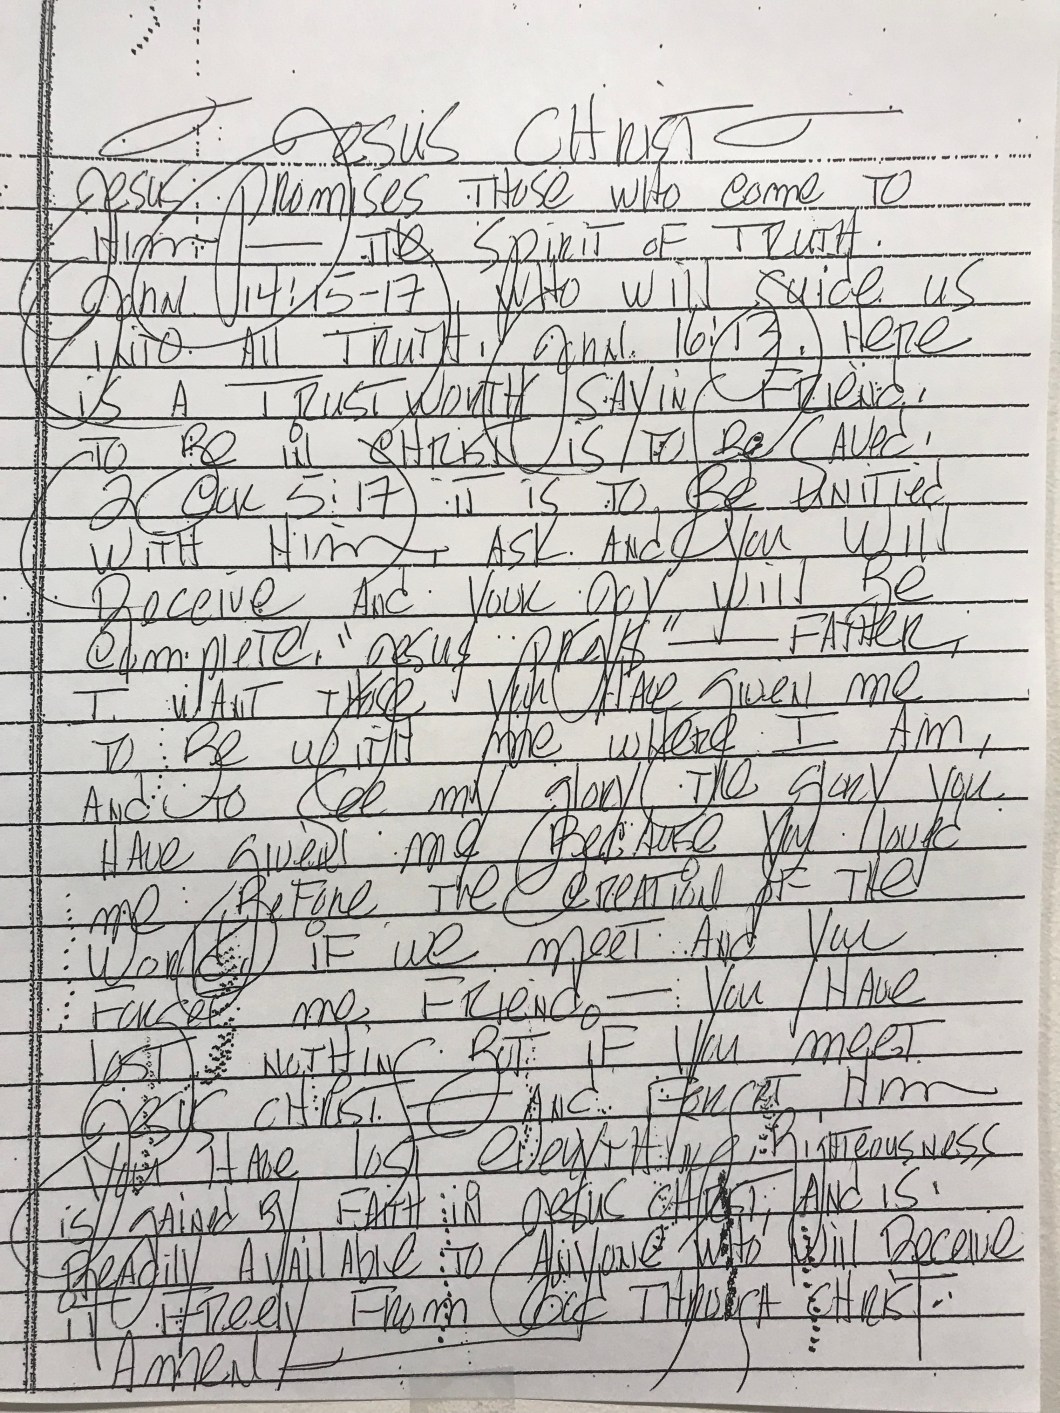 Jesus Christ
Jesus Promises Those who come to
Him — The Spirit of Truth.
John 14:15-17, Who will guide us
into All Truth. John. 16:13. Here
is A Trustworth Sayin Friend,
To Be in Christ is To Be Saved.
2 Cor 5:17 it is To Be Unitied
With Him, Ask And You Will
Receive And Your Joy Will Be
Complete. "Jesus prays" — Father,
I want Those You Have given me
To Be with me where I Am,
And To See my glory The glory you
Have given me Because You loved
me Before The Creation of The
World. if we meet And You
Forget me, Friend. — You Have
lost nothing But if You meet
Jesus Christ — And Forget Him
You Have lost everything, Righteousness
is gained By Faith in Jesus Christ, And is
Readily Available To Anyone who Will Receive
it Freely From God Through Christ.
Amen